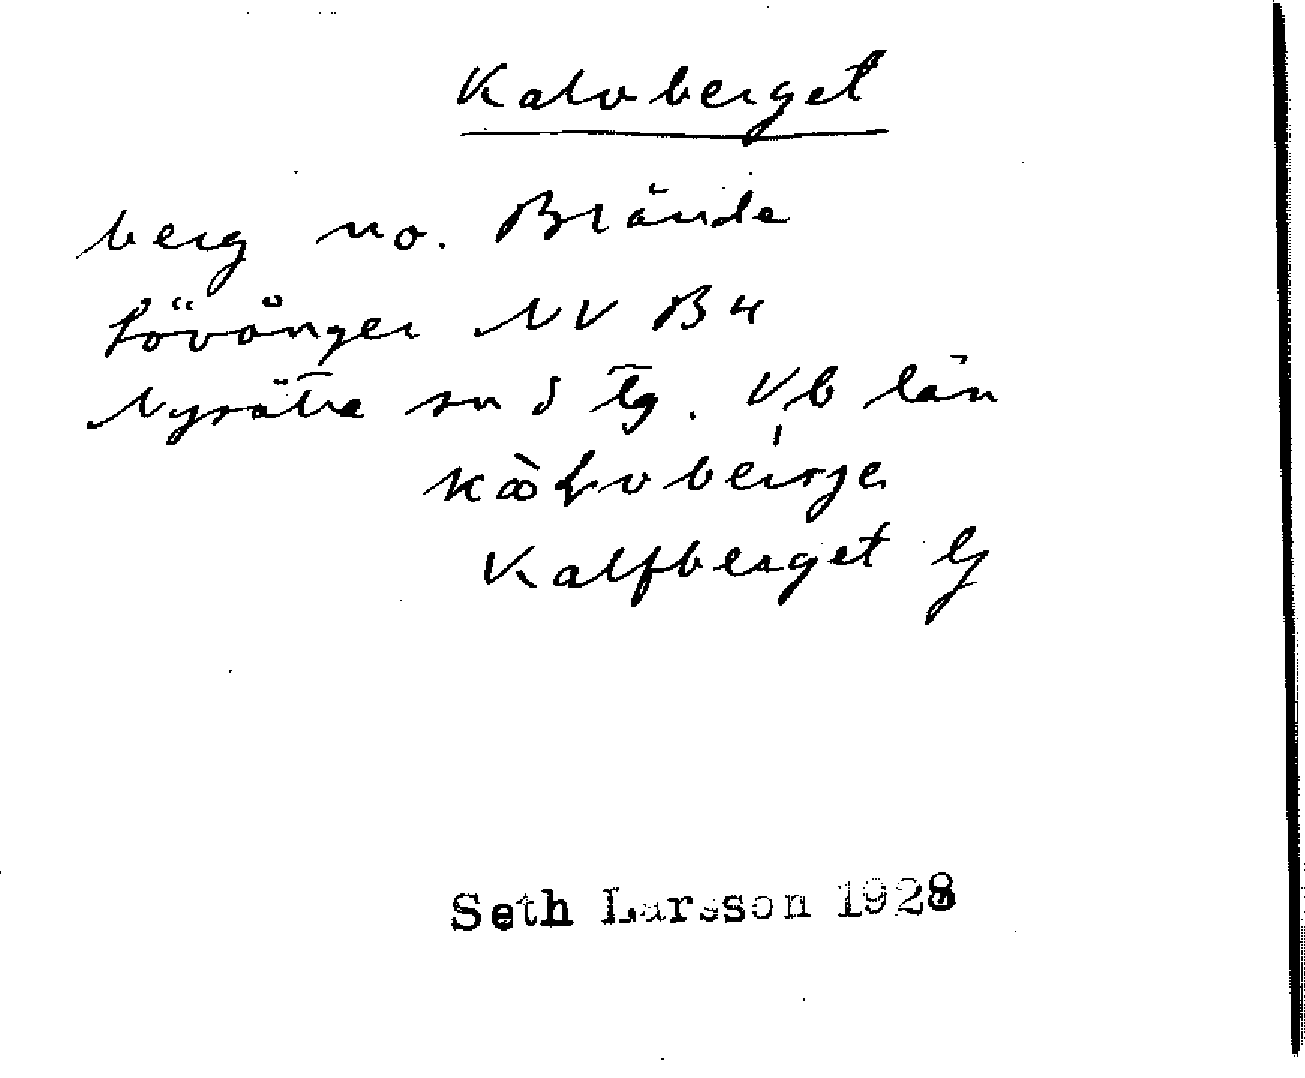 Kalvberget
berg no. Brände
Lövånger NV B4
Nysätra sn s tg. Vb län
Kalfberget
Seth Larsson 1928